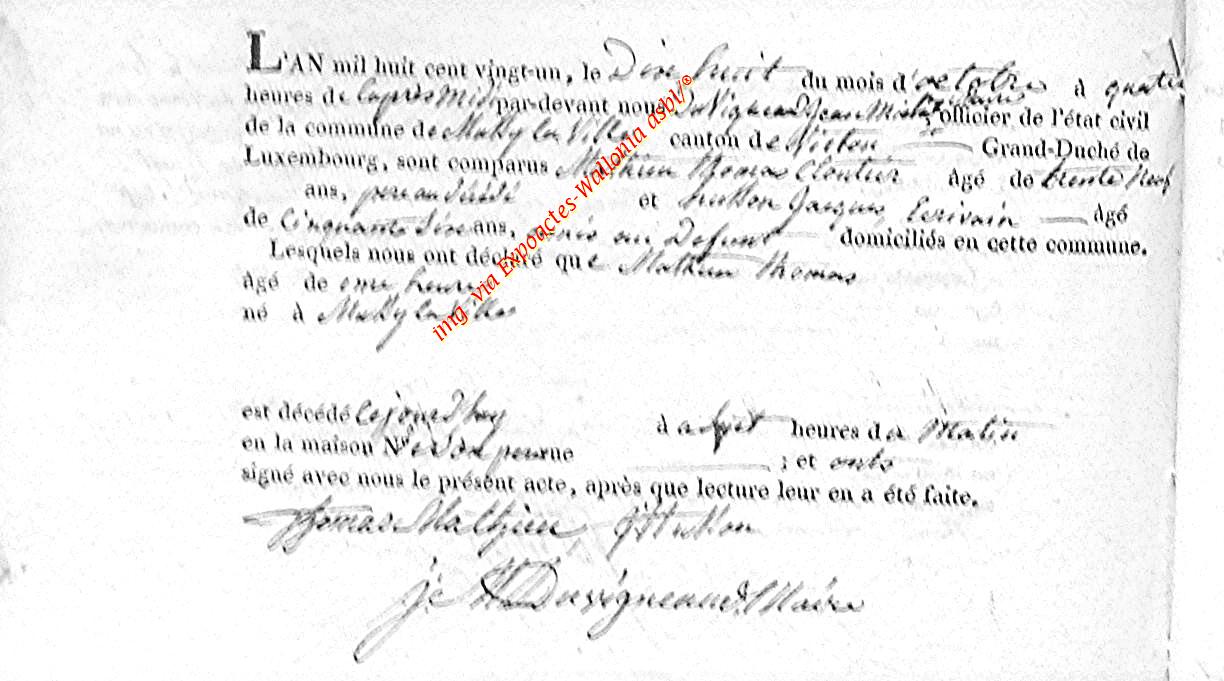 L'AN mil huit cent vingt-un, le Dix huit du mois d'octobre à quatre
heures de laprès Midy par-devant nous Duvigneaud Jean officier de l'état civil
de la commune de canton de Virton Grand-Duché de
Luxembourg, sont comparus Mathieu thomas Cloutier âgé de trente Neuf
ans, pere au décédé et husson Jacques, Ecrivain âgé
de Cinquante Six ans, au Defunt domiciliés en cette commune.
Lesquels nous ont déclaré que Mathieu thomas
âgé de heure
né à
est décédé cejourdhuy à sept heures du Matin
en la maison N° de son pere rue ; et onts
signé avec nous le présent acte, après que lecture leur en a été faite.
thomas Mathieu, husson
Duvigneaud Maire
img via Expoactes-Wallonia asbl/©